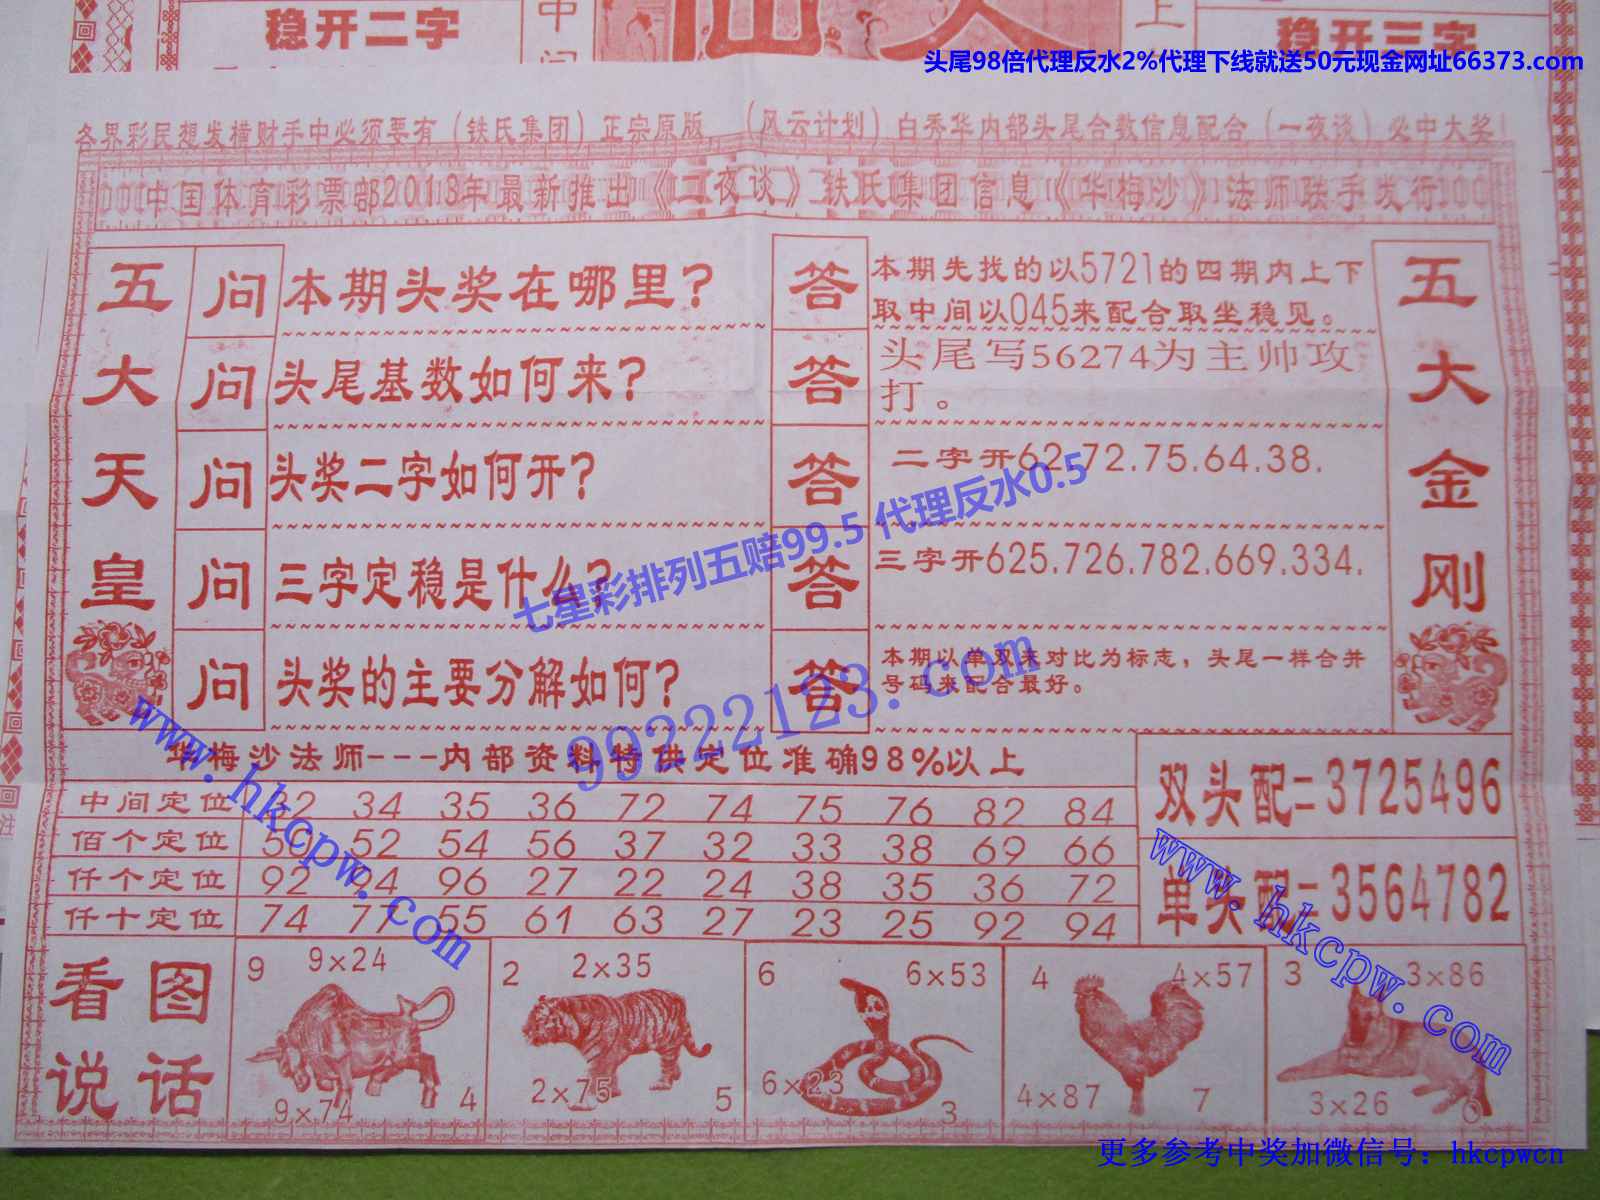 稳开二字
中
上
稳开三字
头尾98倍代理反水2%代理下线就送50元现金网址66373.com
各界彩民想发横财手中必须要有（铁氏集团）正宗原版，（风云计划）白秀华内部头尾合数信息配合（一夜谈）必中大奖！
中国体育彩票部2013年最新推出《一夜谈》铁氏集团信息《华梅沙》法师联手发行
五大天皇
问 本期头奖在哪里？
答 本期先找的以5721的四期内上下
取中间以045来配合取坐稳见。
问 头尾基数如何来？
答 头尾写56274为主帅攻
打。
问 头奖二字如何开？
答 二字开62.72.75.64.38.
问 三字定稳是什么？
答 三字开625.726.782.669.334.
问 头奖的主要分解如何？
答 本期以单双来对比为标志，头尾一样合并
号码来配合最好。
五大金刚
七星彩排列五赔99.5 代理反水0.5
99222123.com
华梅沙法师---内部资料特供定位准确98%以上
中间定位 32 34 35 36 72 74 75 76 82 84
佰个定位 52 54 56 37 32 33 38 69 66
仟个定位 92 94 96 27 22 24 38 35 36 72
仟十定位 74 77 55 61 63 27 23 25 92 94
双头配=3725496
单头配=3564782
www.hkcpw.com
www.hkcpw.com
看图
说话
9 9×24
9×74 4
2 2×35
2×75 5
6 6×53
6×23 3
4 4×57
4×87 7
3 3×86
3×26 0
更多参考中奖加微信号：hkcpwcn